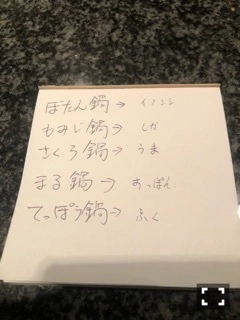 ぼたん鍋→ イノシシ
もみじ鍋→ しか
さくら鍋→ うま
まる鍋→ すっぽん
てっぽう鍋→ ふく